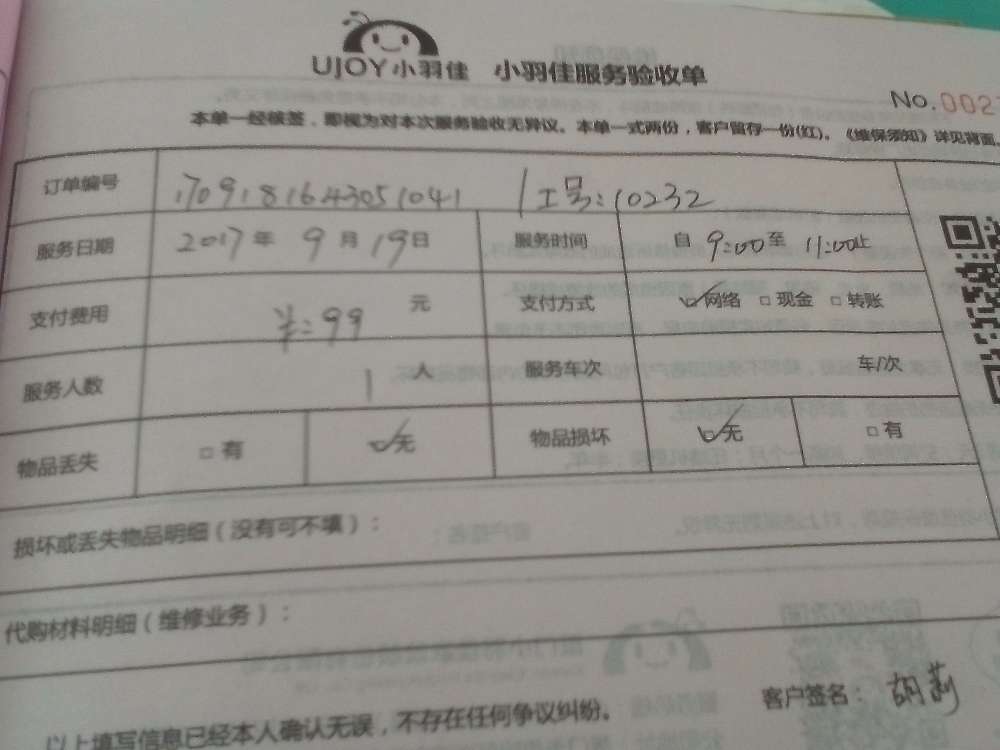 UJOY小羽佳 小羽佳服务验收单
No.002
本单一经核签，即视为对本次服务验收无异议。本单一式两份，客户留存一份(红)。《维保须知》详见背面。
订单编号 170918164305 1041 工号:10232
服务日期 2017年9月19日 服务时间 自9:00至11:00止
支付费用 半:99元 支付方式 ☑网络 □现金 □转账
服务人数 1人 服务车次 车/次
物品丢失 □有 ☑无 物品损坏 ☑无 □有
损坏或丢失物品明细（没有可不填）:
代购材料明细（维修业务）:
客户签名: 胡莉
以上填写信息已经本人确认无误，不存在任何争议纠纷。